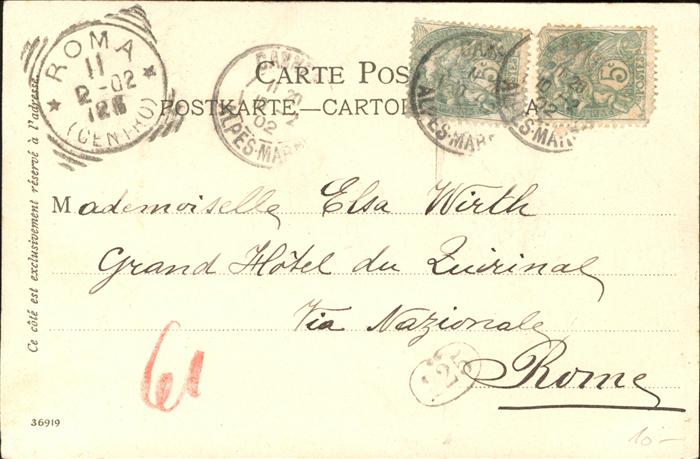 ROMA
11
2-02
12S
(CENTRO)
CANNES
02
ALPES-MAR
CARTE POS
POSTKARTE.—CARTO
5
ALPES-MAR
5
ALPES-MAR
Ce côté est exclusivement réservé à l'adresse.
Mademoiselle Elsa Wirth
Grand Hôtel du Quirinal
Via Nazionale
Rome
61
36919
10-